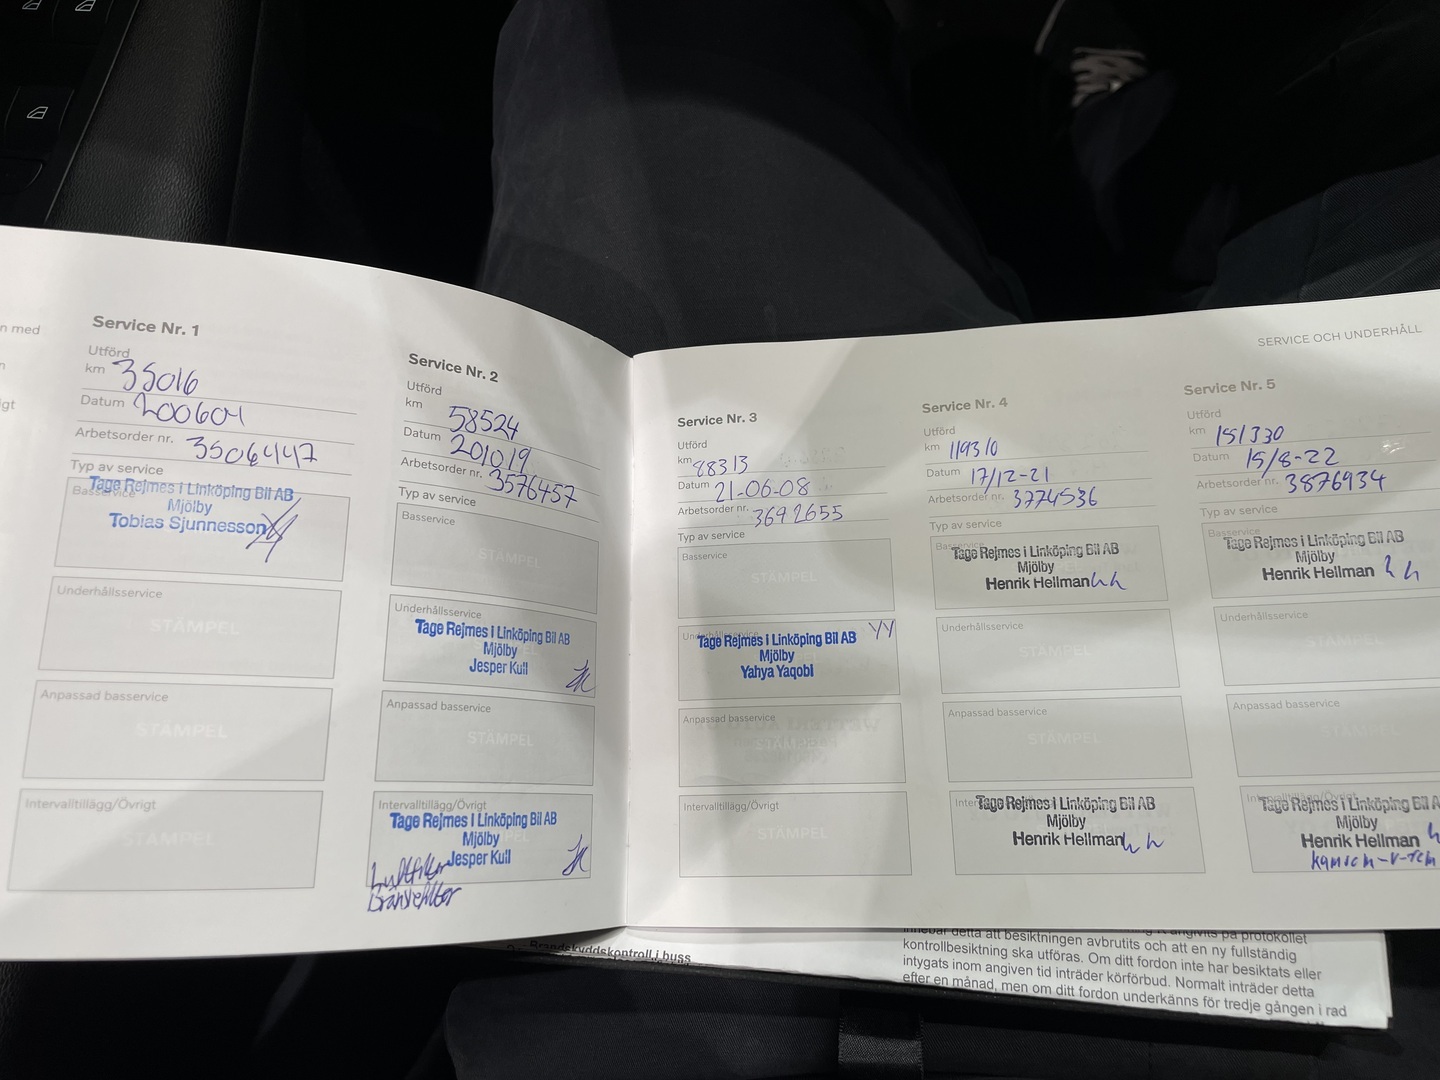 n med
n
igt
Service Nr. 1
Utförd
km 35016
Datum 200604
Arbetsorder nr. 3506447
Typ av service
Basservice
Tage Rejmes I Linköping Bil AB
Mjölby
Tobias Sjunnesson
Underhållsservice
STÄMPEL
Anpassad basservice
STÄMPEL
Intervalltillägg/Övrigt
STÄMPEL
Service Nr. 2
Utförd
km 58524
Datum 201019
Arbetsorder nr. 3576457
Typ av service
Basservice
STÄMPEL
Underhållsservice
Tage Rejmes I Linköping Bil AB
Mjölby
Jesper Kull
Anpassad basservice
STÄMPEL
Intervalltillägg/Övrigt
Tage Rejmes I Linköping Bil AB
Mjölby
Jesper Kull
Luftfilter
Bränslefilter
SERVICE OCH UNDERHÅLL
Service Nr. 3
Utförd
km 88313
Datum 21-06-08
Arbetsorder nr. 3692655
Typ av service
Basservice
STÄMPEL
Underhållsservice
Tage Rejmes I Linköping Bil AB YY
Mjölby
Yahya Yaqobi
Anpassad basservice
STÄMPEL
Intervalltillägg/Övrigt
STÄMPEL
Service Nr. 4
Utförd
km 119310
Datum 17/12-21
Arbetsorder nr. 3774536
Typ av service
Basservice
Tage Rejmes I Linköping Bil AB
Mjölby
Henrik Hellman h h
Underhållsservice
STÄMPEL
Anpassad basservice
STÄMPEL
Tage Rejmes I Linköping Bil AB
Mjölby
Henrik Hellman h h
Service Nr. 5
Utförd
km 151330
Datum 15/8-22
Arbetsorder nr. 3876934
Typ av service
Basservice
Tage Rejmes I Linköping Bil AB
Mjölby
Henrik Hellman h h
Underhållsservice
STÄMPEL
Anpassad basservice
STÄMPEL
Intervalltillägg/Övrigt
Tage Rejmes I Linköping Bil A
Mjölby
Henrik Hellman h
Brandskyddskontroll i buss
innebär detta att besiktningen avbrutits och att en ny fullständig
kontrollbesiktning ska utföras. Om ditt fordon inte har besiktats eller
intygats inom angiven tid inträder körförbud. Normalt inträder detta
efter en månad, men om ditt fordon underkänns för tredje gången i rad